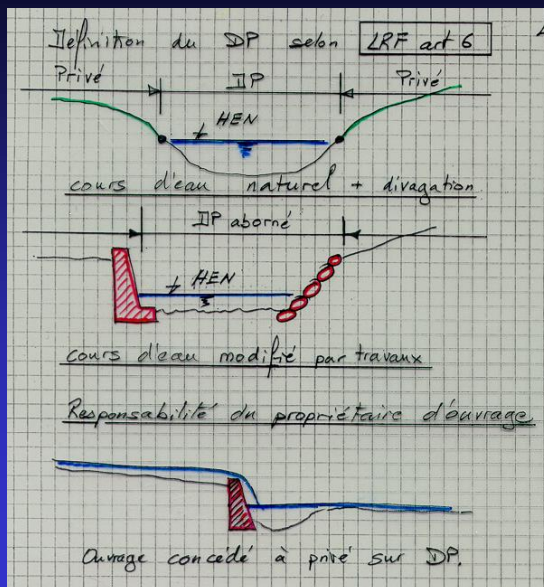 Définition du DP selon LRF art 6
Privé DP Privé
HEN
cours d'eau naturel + divagation
DP aborné
HEN
cours d'eau modifié par travaux
Responsabilité du propriétaire d'ouvrage
Ouvrage concédé à privé sur DP.